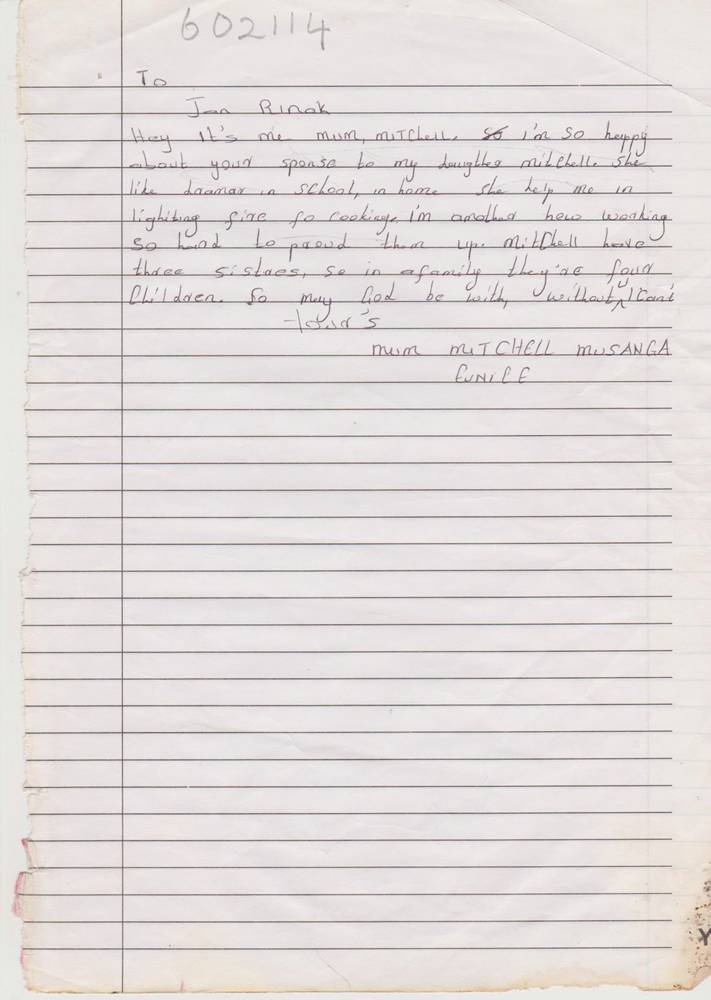 602114
To
Jan Rinok
Hey It's me mum, miTchell. So i'm so heppy
about your sponse to my daughter mitchell. She
like dramar in school, in home she help me in
lighiting fire fo cookieg. i'm another how working
so hard to proud them up. Mitchell have
three sistres, so in afamily they're four
Children. So may God be with, without u I can't
Your's
mum miTCHELL muSANGA
EUNICE
Y